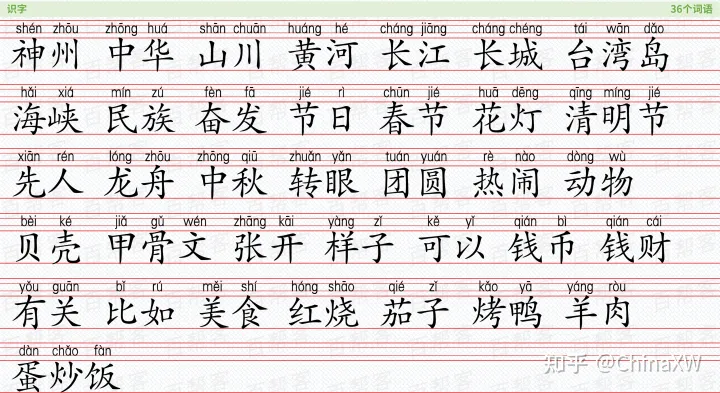 识字 36个词语
shén zhōu zhōng huá shān chuān huáng hé cháng jiāng cháng chéng tái wān dǎo
神州 中华 山川 黄河 长江 长城 台湾岛
hǎi xiá mín zú fèn fā jié rì chūn jié huā dēng qīng míng jié
海峡 民族 奋发 节日 春节 花灯 清明节
xiān rén lóng zhōu zhōng qiū zhuǎn yǎn tuán yuán rè nào dòng wù
先人 龙舟 中秋 转眼 团圆 热闹 动物
bèi ké jiǎ gǔ wén zhāng kāi yàng zǐ kě yǐ qián bì qián cái
贝壳 甲骨文 张开 样子 可以 钱币 钱财
yǒu guān bǐ rú měi shí hóng shāo qié zǐ kǎo yā yáng ròu
有关 比如 美食 红烧 茄子 烤鸭 羊肉
dàn chǎo fàn
蛋炒饭
知乎 @ChinaXW